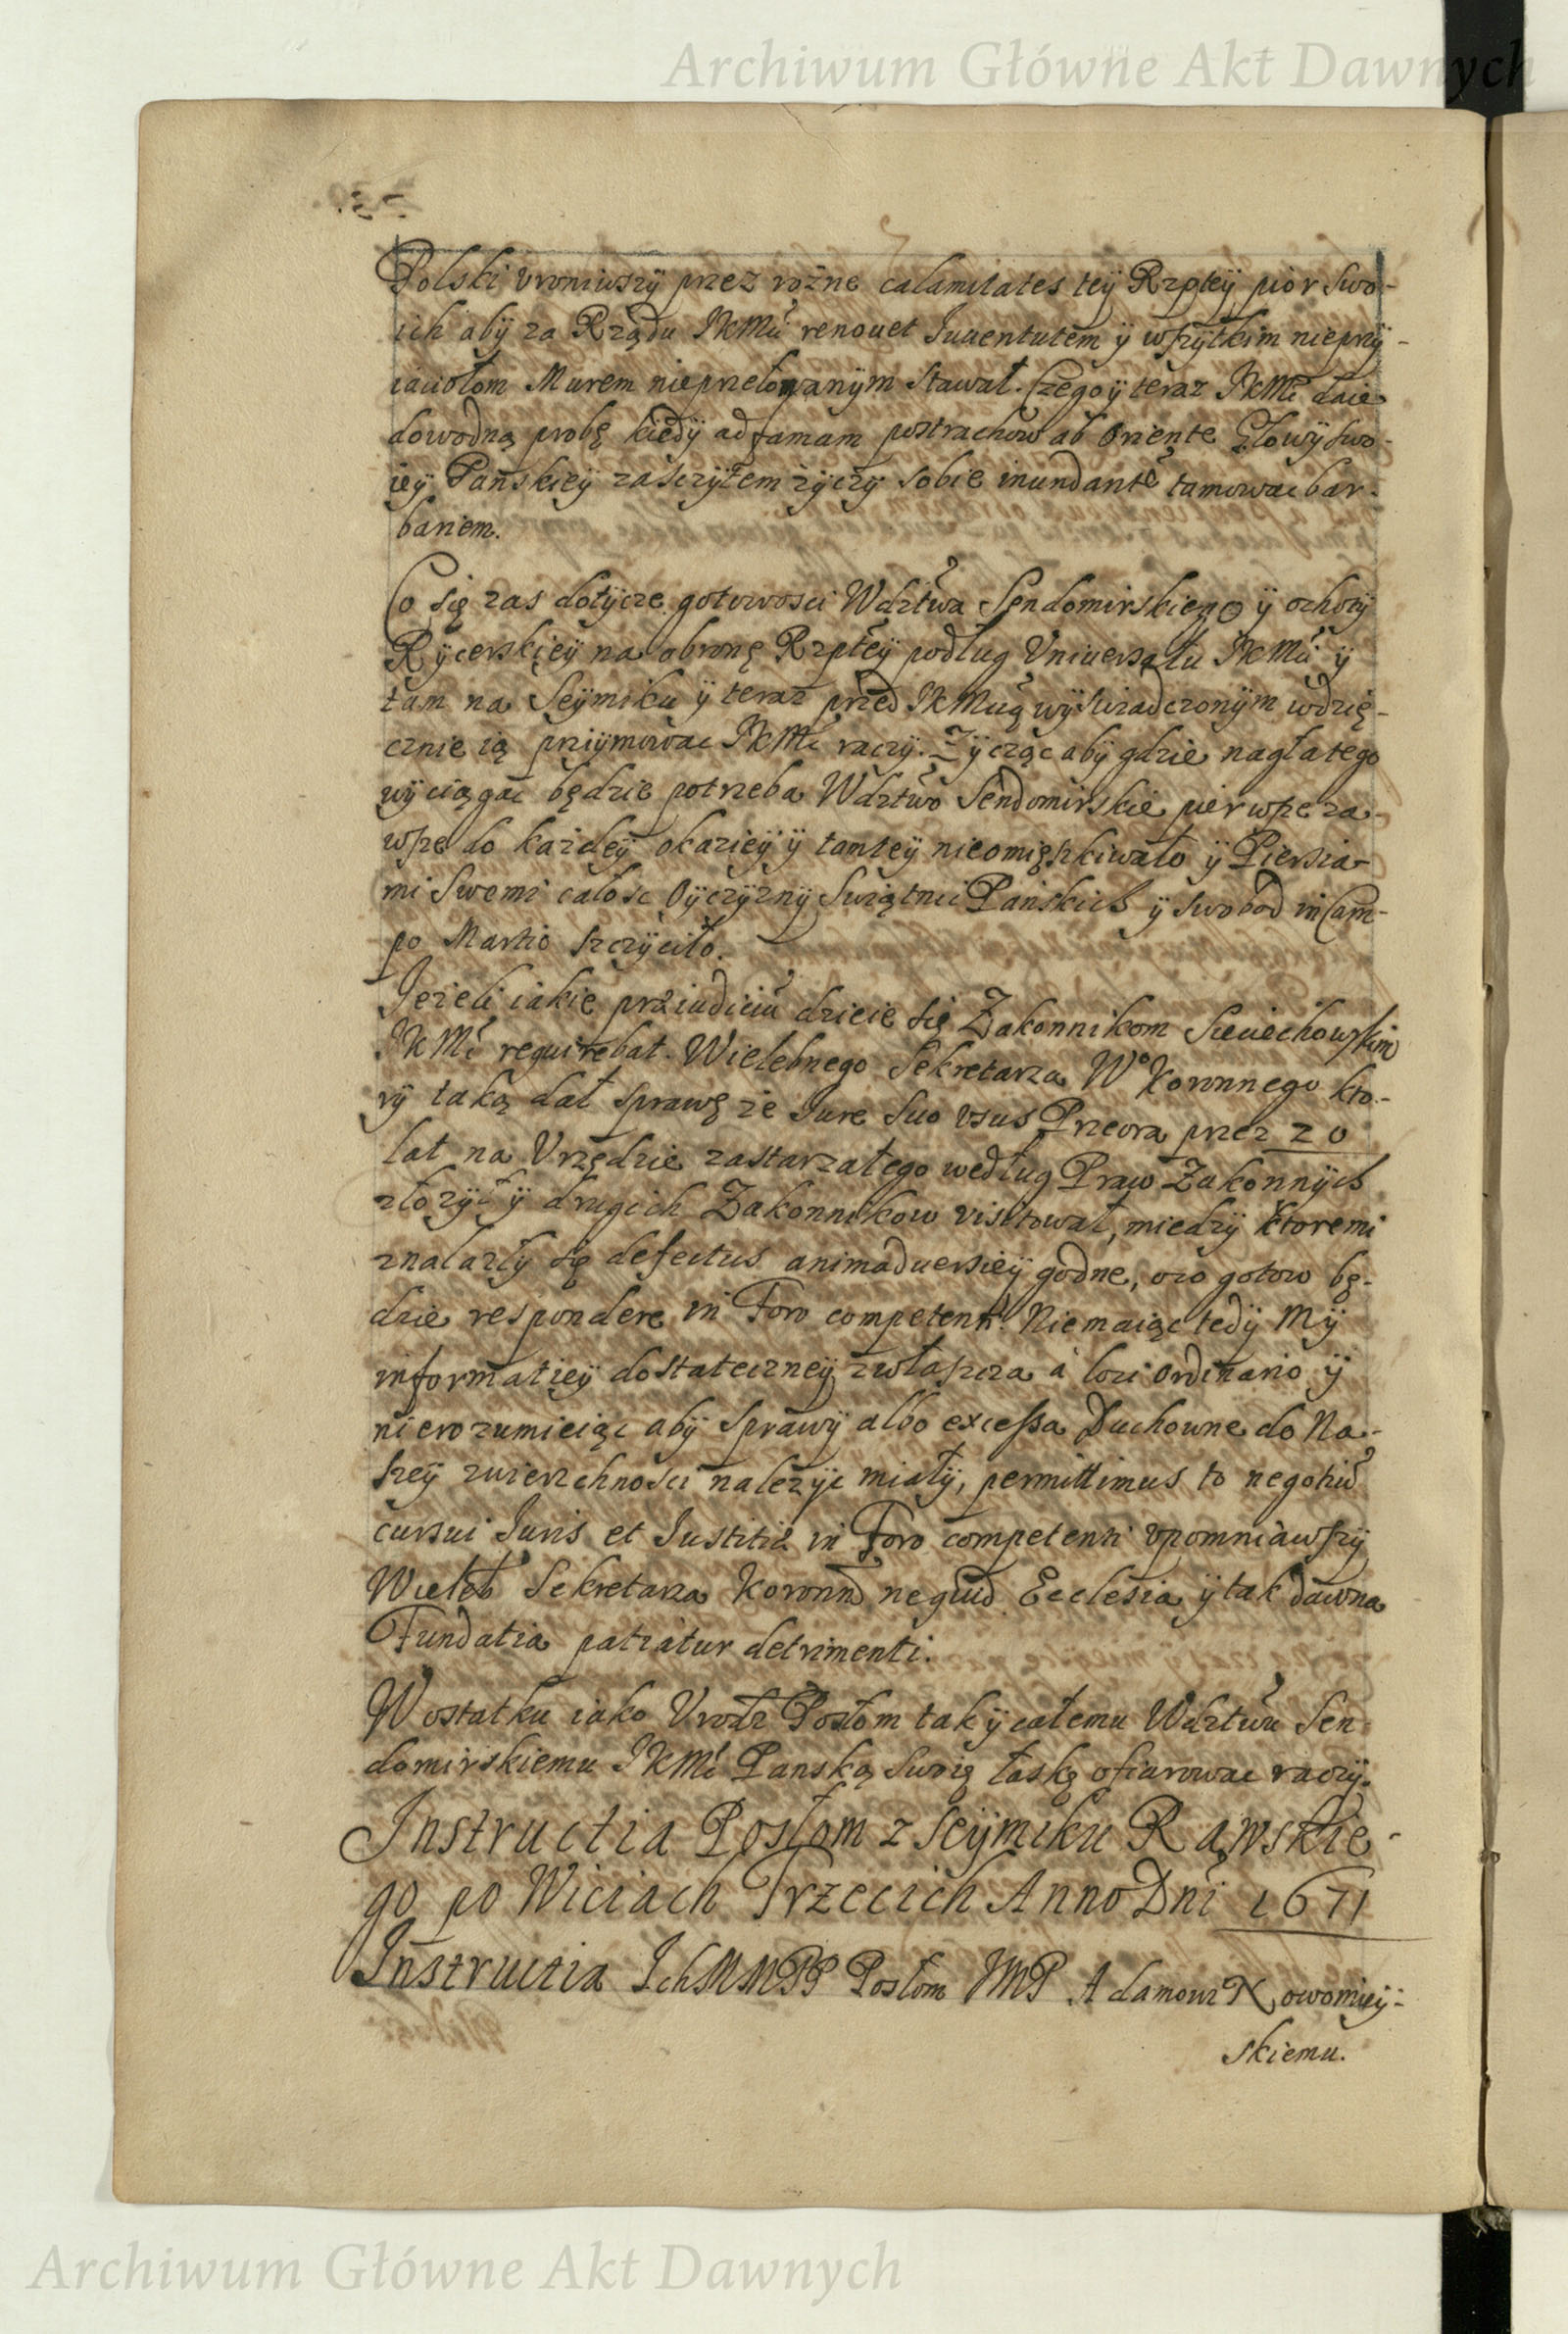 Archiwum Główne Akt Dawnych
Polski vroniwszÿ przez rożne calamitates teÿ Rzpteÿ piór Swo-
ich abÿ za Rządu JKMci renouet Juuentutem ÿ wszÿtkim nieprzÿ-
iaciołom Murem nieprzełomanÿm Stawał. Czego ÿ teraz JKMć daie
dowodną probę kiedÿ ad famam postrachow ab Oriente GłowÿSwo-
ieÿ Pańskieÿ zaszczÿtem życzÿ sobie inundantẽ tamować bar-
bariem.
Co się zas dotÿcze gotowosci Wdztwa Sendomirskiego ÿ ochotÿ
Rÿcerskieÿ na obronę Rzpteÿ podług Vniuersału JKMci ÿ
tam na Seÿmiku ÿ teraz przed JKMcią wÿswiadczonÿm wdzię-
cznie ią prziÿmowac JKMć raczÿ. Zÿcząc abÿ gdzie nagła tego
wÿciągac będzie potrzeba Wdztwo Sendomirskie pierwsze za-
wsze do każdeÿ okazieÿ ÿ tamteÿ nieomięszkiwało ÿ Piersia-
mi Swemi całosc Oÿczÿznÿ Swiątnic Pańskich ÿ Swobod in Cam-
po Martio szczÿciło.
Jezeli iakie præiudiciũ dzieie się Zakonnikom Sieciechowskim
JKMć requirebat Wielebnego Sekretarza Wo Koronnego kto-
rÿ taką dał sprawę że Jure Suo vsus Przeora przez 20
lat na Vrzędzie zastarzałego według Praw Zakonnÿch
złożÿł ÿ drugich Zakonnikow visitował, miedzÿ ktoremi
znalazłÿ się defectus animaduersieÿ godne, oco gotow bę-
dzie respondere in Foro competenti. Niemaiąc tedÿ Mÿ
informatieÿ dostateczneÿ zwłaszcza à loci Ordinario ÿ
nierozumieiąc abÿ Sprawÿ albo excessa Duchowne do Na-
szeÿ zwierzchnosci należÿc miałÿ, permittimus to negotiũ
cursui Juris et Justitiæ in Foro competenti vpomniawszÿ
Wieleb Sekretarza Koronn nequid Ecclesia ÿ tak dawna
Fundatia patiatur detrimenti.
W ostatku iako Vrodz Posłom tak ÿ całemu Wdztwu Sen-
domirskiemu JKMć Panską Swoię łaskę ofiarowac raczÿ.
Instructia Posłom z Seÿmiku Rawskie-
go po Wiciach Trzecich Anno Dni 1671
Instructia IchMMPP Posłom JMP Adamowi Nowomieÿ-
skiemu.
Archiwum Główne Akt Dawnych